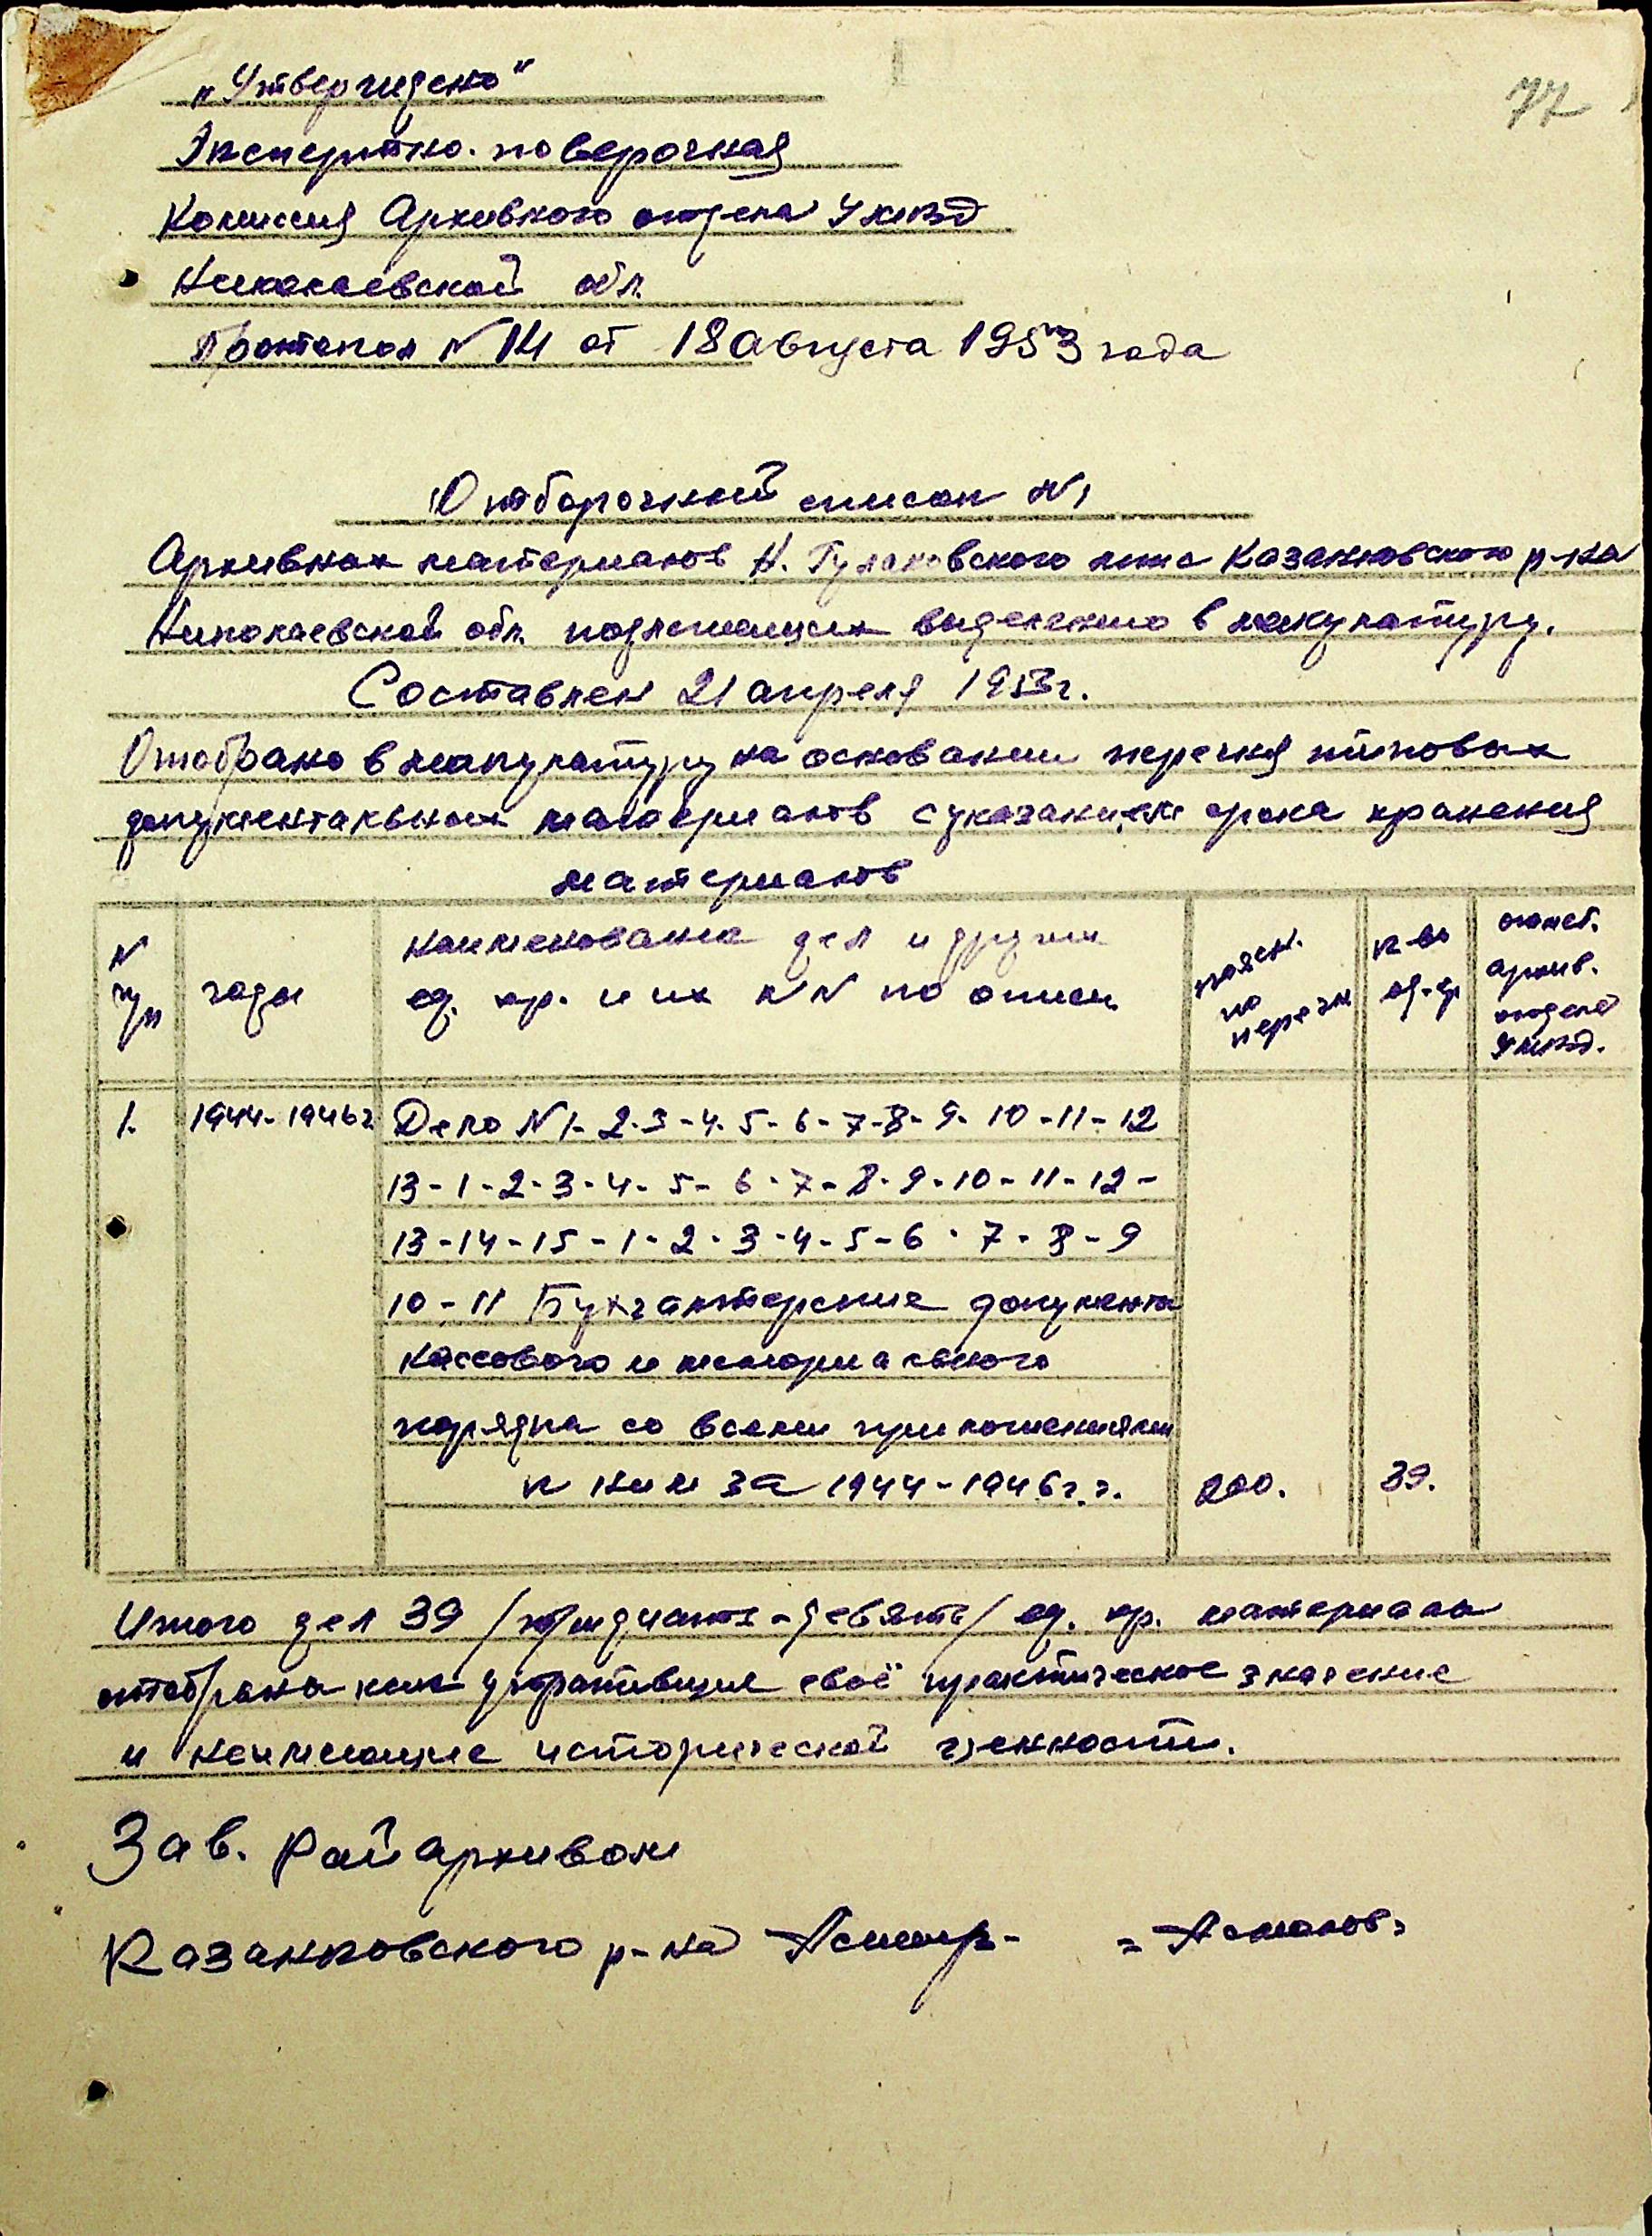 77
„Утверждено“
Экспертно-поверочная
Комиссия Архивного отдела УМВД
Николаевской обл.
Протокол N 14 от 18 августа 1953 года
Отборочный список N1
Архивных материалов Казанковского р-на
Николаевской обл. подлежащих выделению в макулатуру.
Составлен 21 апреля 1953г.
Отобрано в макулатуру на основании перечня типовых
документальных материалов с указанием срока хранения
материалов
N п/п
годы
наименования дел и других
ед. хр. и их NN по описи
поясн. по перечн
к-во ед-хр
отмет. архив. отдела УМВД.
1. 1944-1946г Дело N 1-2-3-4-5-6-7-8-9-10-11-12
13-1-2-3-4-5-6-7-8-9-10-11-12-
13-14-15-1-2-3-4-5-6-7-8-9
10-11 Бухгалтерские документы
кассового и мемориального
порядка со всеми приложениями
к ним за 1944-1946г.г. 200. 39.
Итого дел 39 /тридцать-девять/ ед. хр. материала
отобрана как утративция своё практическое значение
и неимеющие исторической ценности.
Зав. Райархивом
Казанковского р-на